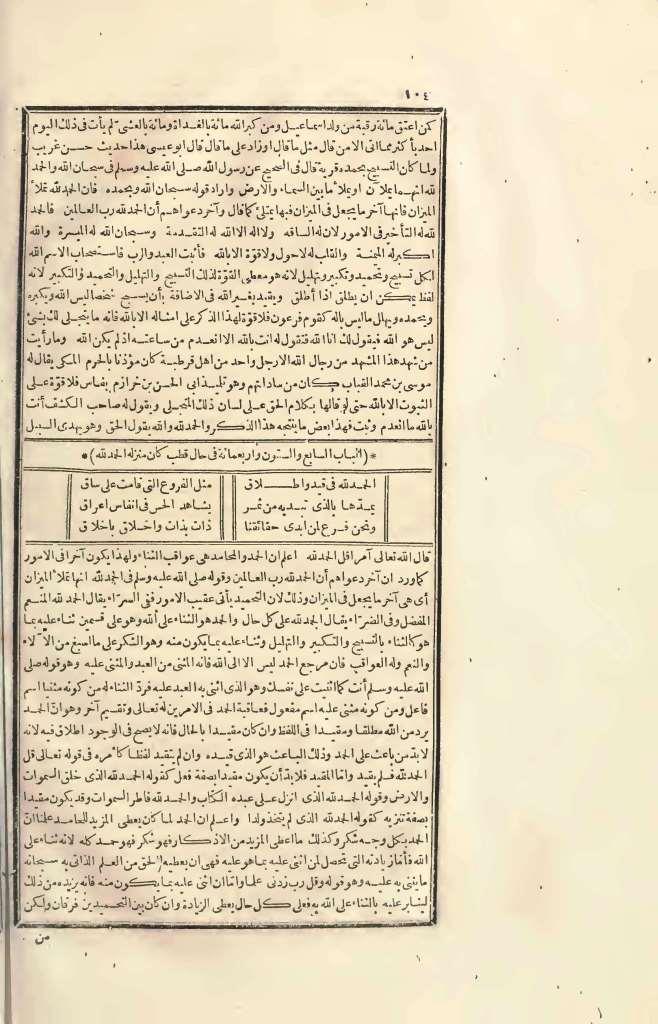 ١٠٤
كمن اعتق مائة رقبة من ولد اسماعيل ومن كبر الله مائة بالغداة ومائة بالعشى لم يأت فى ذلك اليوم
احد بأكثر مما اتى الا من قال مثل ما قال او زاد على ما قال قال ابو عيسى هذا حديث حسن غريب
ولما كان التسبيح بحمده قرية قال فى الصحيح عن رسول الله صلى الله عليه وسلم فى سبحان الله والحمد
لله انهما يملآن او يملأ ما بين السماء والارض واراد قوله سبحان الله وبحمده فان الحمد لله تملأ
الميزان فانها آخر ما يجعل فى الميزان فبها يمتلئ كما قال وآخر دعواهم أن الحمد لله رب العالمين فالحمد
لله له التأخير فى الامور لان له الساقه ولا اله الا الله له التقدمة وسبحان الله له الميسرة والله
اكبر له الميمنة والقلب له لا حول ولا قوة الا بالله فأثبت العبد والرب فاستصحاب الاسم الله
لكل تسبيح وتحميد وتكبير وتهليل لانه هو معطى القوة لذلك التسبيح والتهليل والتحميد والتكبير لانه
لفظ يمكن ان يطلق اذا أطلق ويقيد بغير الله فى الاضافة بأن يسبح شخصا ليس الله ويكبره
ويحمده ويهلل ما ليس باله كقوم فرعون فلا قوة لهذا الذكر على امثاله الا بالله فانه ما يتجلى لك بشئ
ليس هو الله فيقول لك انا الله فتقول له انت بالله الا انعدم من ساعته اذ لم يكن الله وما رأيت
من شهد هذا المشهد من رجال الله الا رجل واحد من اهل قرطبة كان مؤذنا بالحرم المكى يقال له
موسى بن محمد القباب كان من ساداتهم وهو تلميذ ابى الحسن بن حرازم بفاس فلا قوة على
الثبوت الا بالله حتى لو قالها بكلام الحق على لسان ذلك المتجلى ويقول له صاحب الكشف أنت
بالله ما انعدم وثبت فهذا بعض ما ينتجه هذا الذكر والحمد لله والله يقول الحق وهو يهدى السبيل
*(الباب السابع والستون واربعمائة فى حال قطب كان منزله الحمد لله)*
الحمد لله فى قيد واطـلاق مثل الفروع التى قامت على ساق
يمدها بالذى تبديه من ثمر يشاهد الحس فى انفاس اعراق
ونحن فرع لمن ابدى حقائقنا ذات بذات واخلاق باخلاق
قال الله تعالى آمرا قل الحمد لله اعلم ان الحمد والمحامد هى عواقب الثناء ولهذا يكون آخرا فى الامور
كما ورد ان آخر دعواهم أن الحمد لله رب العالمين وقوله صلى الله عليه وسلم فى الحمد لله انها تملأ الميزان
أى هى آخر ما يجعل فى الميزان وذلك لان التحميد يأتى عقيب الامور ففى السراء يقال الحمد لله المنعم
المفضل وفى الضراء يقال الحمد لله على كل حال والحمد هو الثناء على الله وهو على قسمين ثناء عليه بما
هو كالثناء بالتسبيح والتكبير والتهليل وثناء عليه بما يكون منه وهو الشكر على ما اسبغ من الآلاء
والنعم وله العواقب فان مرجع الحمد ليس الا الى الله فانه المثنى من العبد والمثنى عليه وهو قوله صلى
الله عليه وسلم أنت كما اثنيت على نفسك وهو الذى اثنى به العبد عليه فرد الثناء له من كونه مثنيا اسم
فاعل ومن كونه مثنى عليه اسم مفعول فعاقبة الحمد فى الامرين له تعالى وتقسيم آخر وهو ان الحمد
يرد من الله مطلقا ومقيدا فى اللفظ وان كان مقيدا بالحال فانه لا يصح فى الوجود اطلاق فيه لانه
لا بد من باعث على الحمد وذلك الباعث هو الذى قيده وان لم يتقيد لفظا كأمره فى قوله تعالى قل
الحمد لله فلم يقيد واما المقيد فلا بد أن يكون مقيدا بصفة فعل كقوله الحمد لله الذى خلق السموات
والارض وقوله الحمد لله الذى انزل على عبده الكتاب والحمد لله فاطر السموات وقد يكون مقيدا
بصفة تنزيه كقوله الحمد لله الذى لم يتخذ ولدا واعلم ان الحمد لما كان يعطى المزيد للحامد علمنا ان
الحمد بكل وجه شكر وكذلك ما اعطى المزيد من الاذكار فهو شكر فهو حمد كله لانه ثناء على
الله فأما زيادته التى تحصل لمن اثنى عليه بما هو عليه فهى ان يعطيه الحق من العلم الذاتى به سبحانه
ما يثنى به عليه وهو قوله وقل رب زدنى علما واما ان اثنى عليه بما يكون منه فانه يزيده من ذلك
ليثابر عليه بالثناء على الله به فعلى كل حال يعطى الزيادة وان كان بين التحميدين فرقان ولكن
من